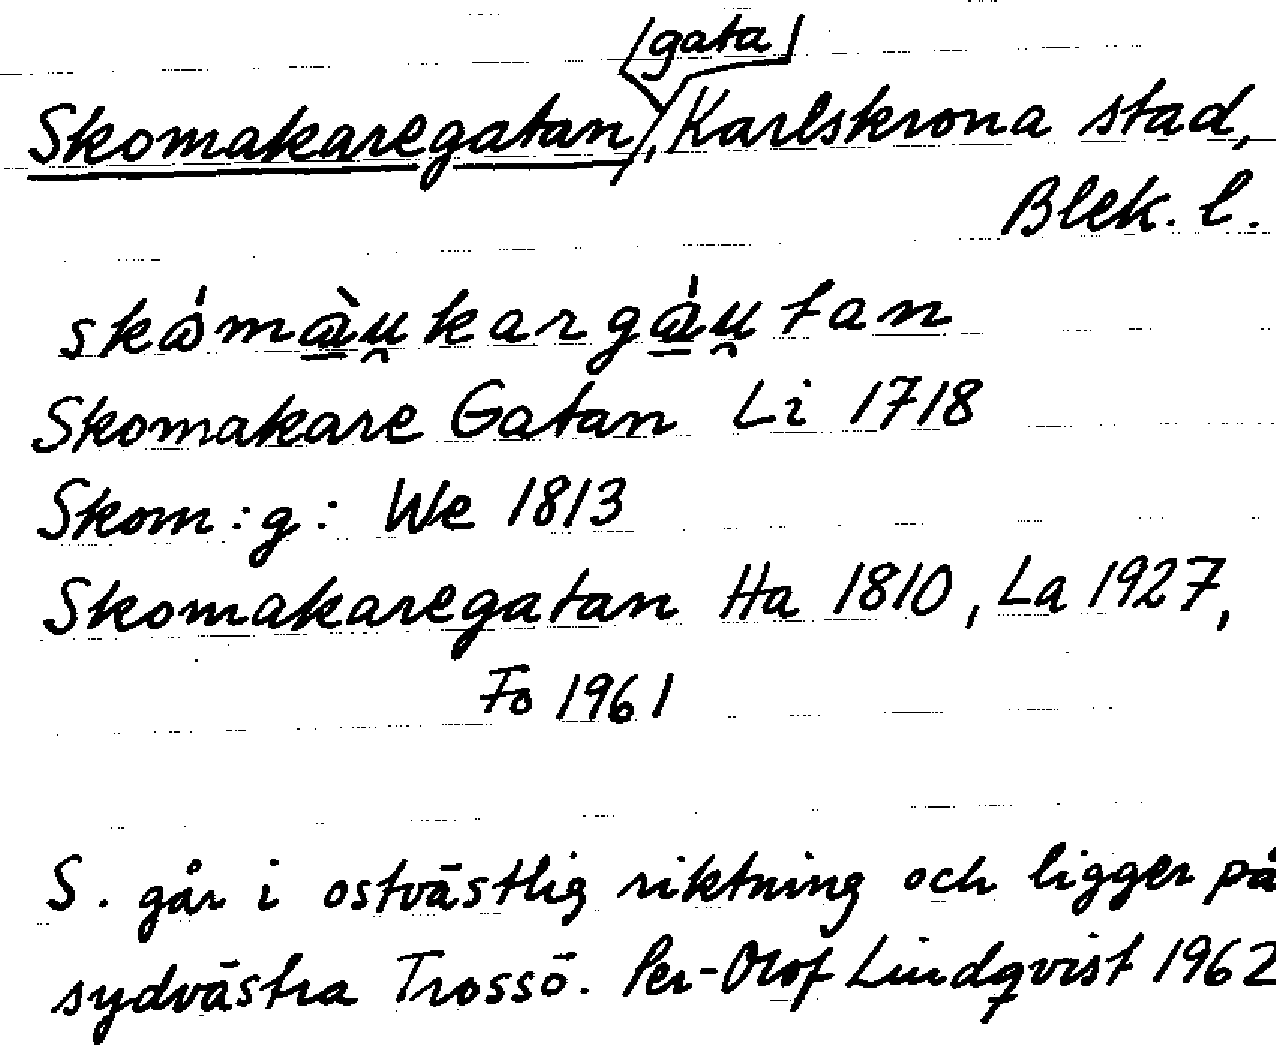 /gata/
Skomakaregatan, Karlskrona stad,
Blek. l.
Skomakare Gatan Li 1718
Skom:g: We 1813
Skomakaregatan Ha 1810, La 1927,
Fo 1961
S. går i ostvästlig riktning och ligger på
sydvästra Trossö. Per-Olof Lindqvist 1962